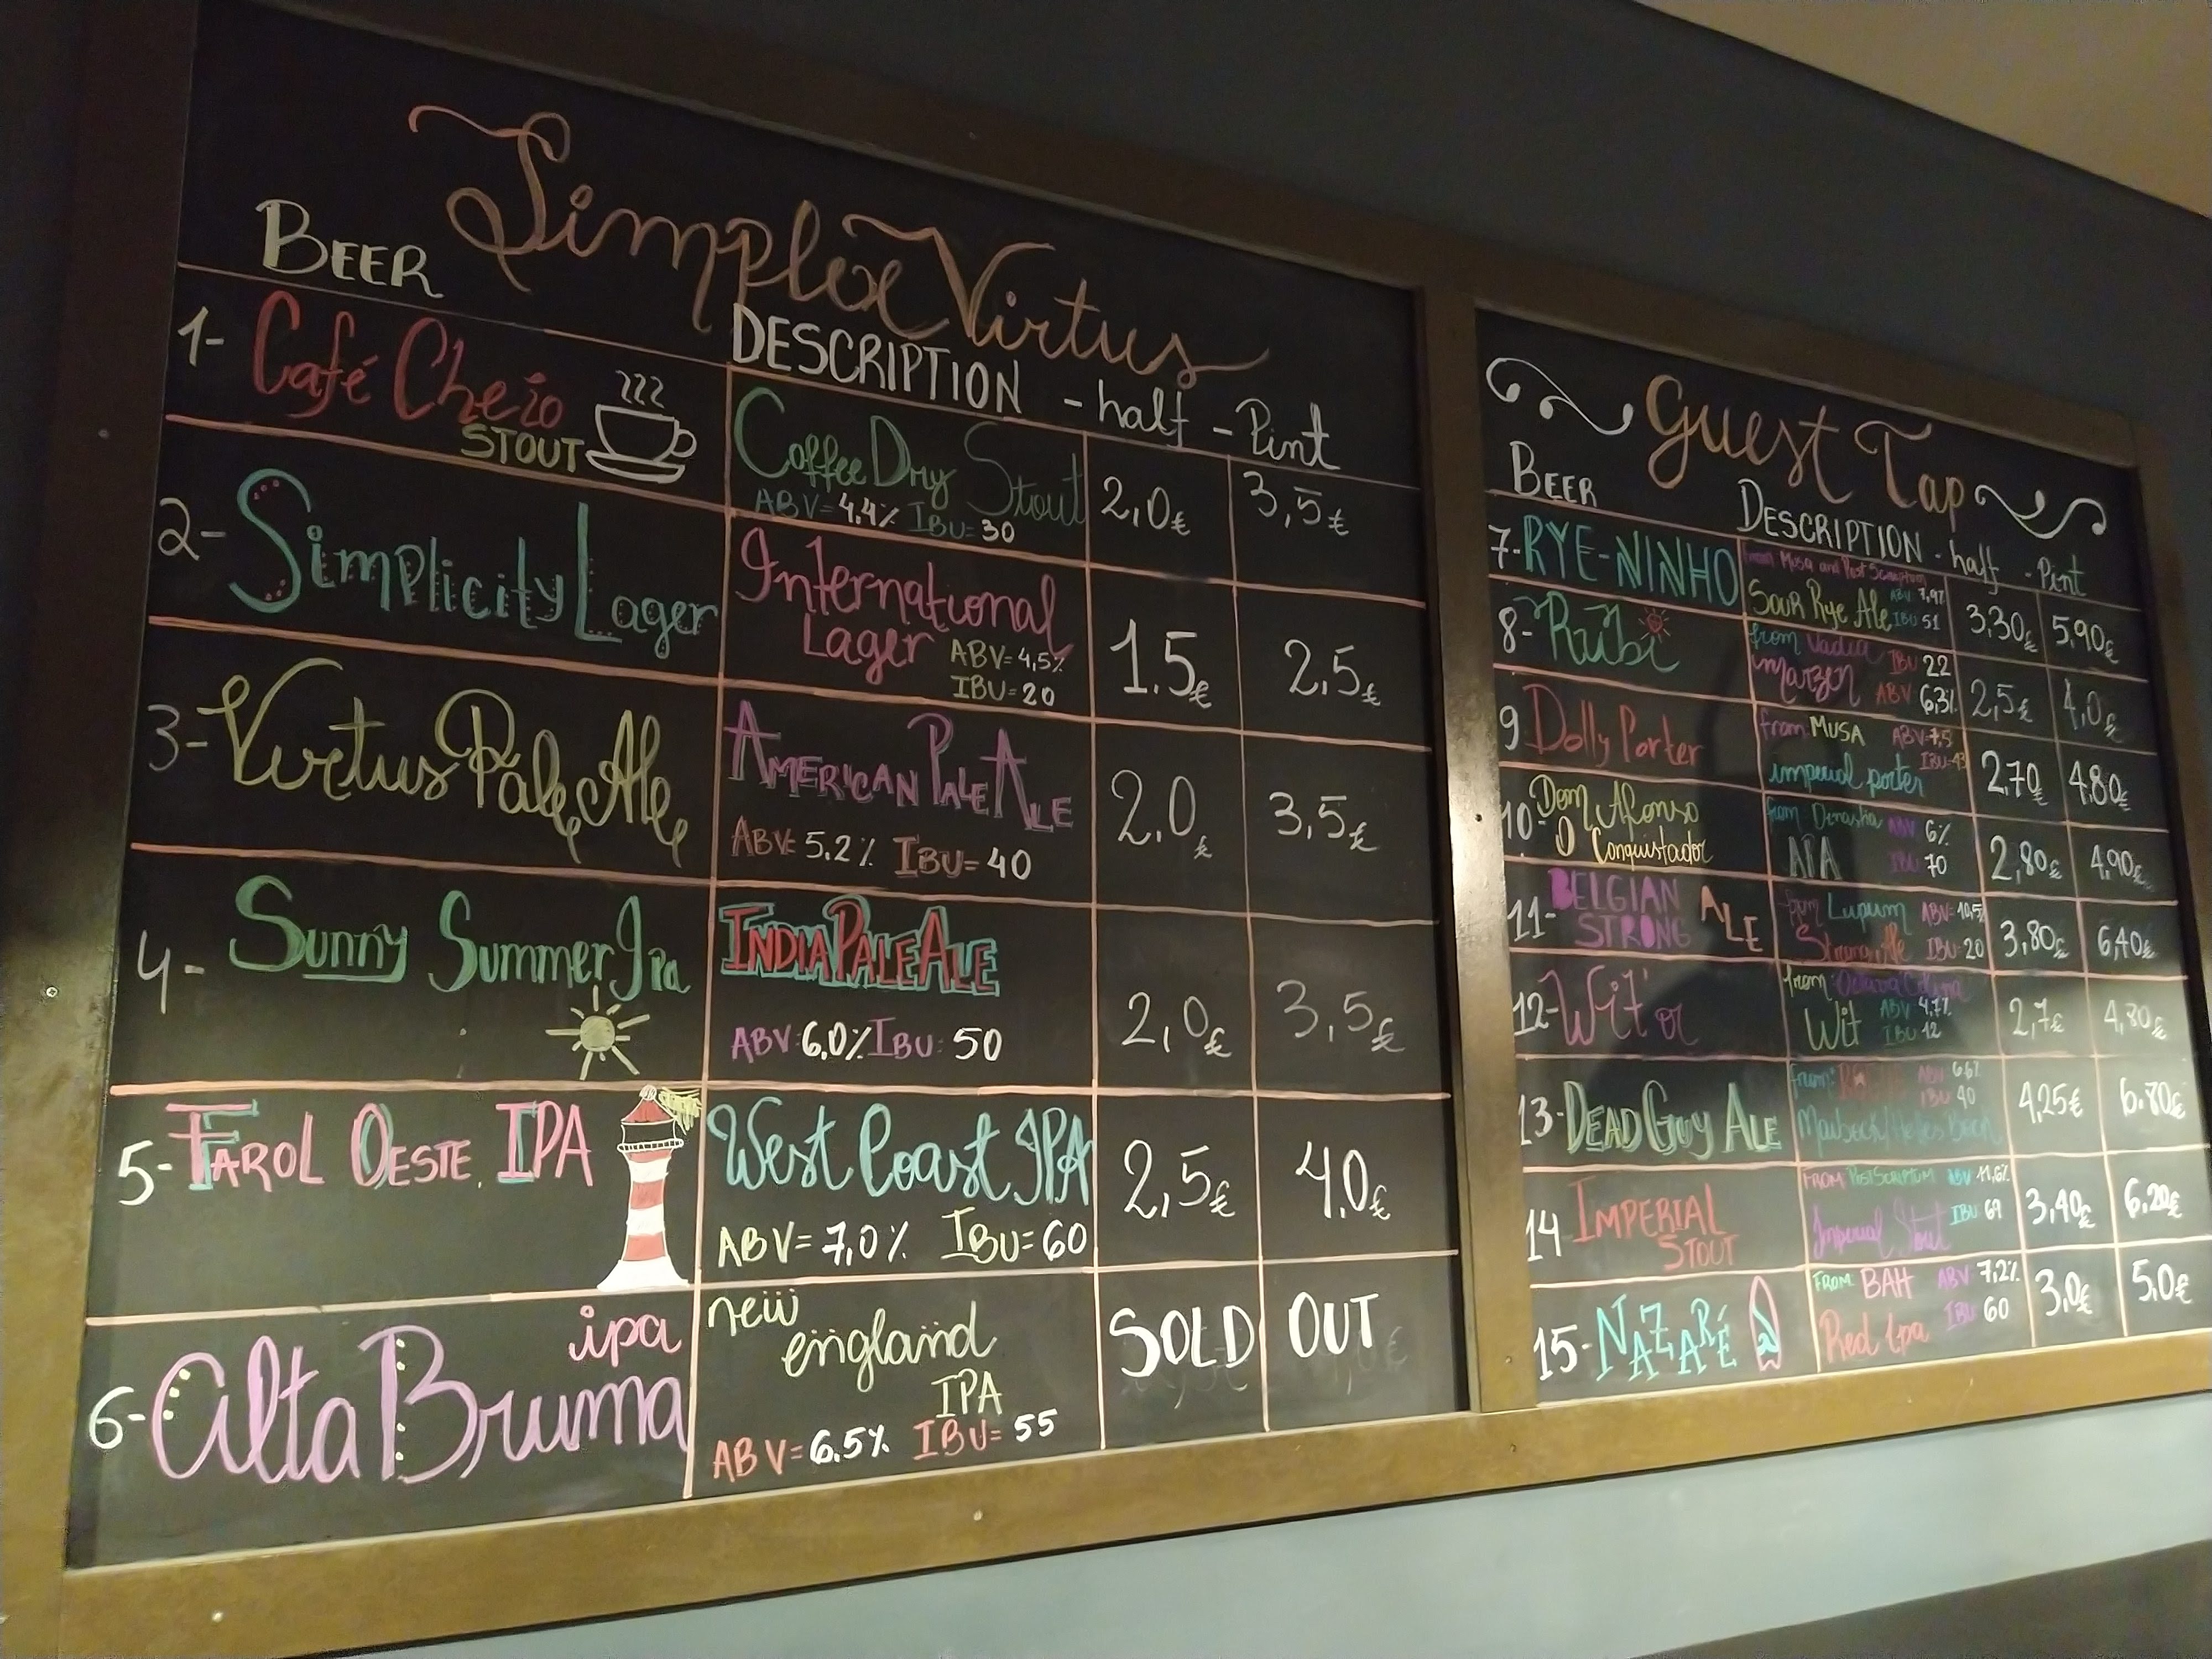 Simplex Virtus
BEER
DESCRIPTION - half - Pint
1- Café Cheio
STOUT
Coffee Dry Stout
ABV= 4.4% IBU= 30
2,0€ 3,5€
2- Simplicity Lager
International
Lager ABV= 4,5%
IBU= 20
1.5€ 2,5€
3- Virtus Pale Ale
AMERICAN PALE ALE
ABV= 5.2% IBU= 40
2,0€ 3,5€
4- Sunny Summer Ipa
INDIA PALE ALE
ABV: 6,0% IBU: 50
2,0€ 3,5€
5- FAROL OESTE IPA
West Coast IPA
ABV= 7,0% IBU= 60
2,5€ 4.0€
6- Alta Bruma ipa
new
england
IPA
ABV= 6.5% IBU= 55
SOLD OUT
Guest Tap
BEER
DESCRIPTION - half - Pint
7- RYE-NINHO
from Musa and Post Scriptum
Sour Rye Ale ABV 7,9% IBU 51
3,30€ 5,90€
8- Rubi
from Vadia IBU 22
marzen ABV 6,3%
2,5€ 4,0€
9 Dolly Porter
from MUSA ABV-7,5
imperial porter IBU-43
2,70€ 4,80€
10- Dom Afonso
O Conquistador
from Dinastia ABV 6%
IBU 70
2,80€ 4,90€
11- BELGIAN
STRONG ALE
from Lupum ABV= 10,5%
Strong Ale IBU- 20
3,80€ 6,40€
12- Wit'or
from: Oitava Colina
Wit ABV 4,7%
IBU 12
2,7€ 4,80€
13- DEAD GUY ALE
from: ABV 6,6%
IBU 40
Maibock/Helles Bock
4,25€ 6.80€
14 IMPERIAL
STOUT
FROM POSTSCRIPTUM ABV 11,6%
Imperial Stout IBU 69
3,40€ 6,20€
15- NAZARÉ
FROM BAH ABV 7,2%
Red Ipa IBU 60
3,0€ 5,0€